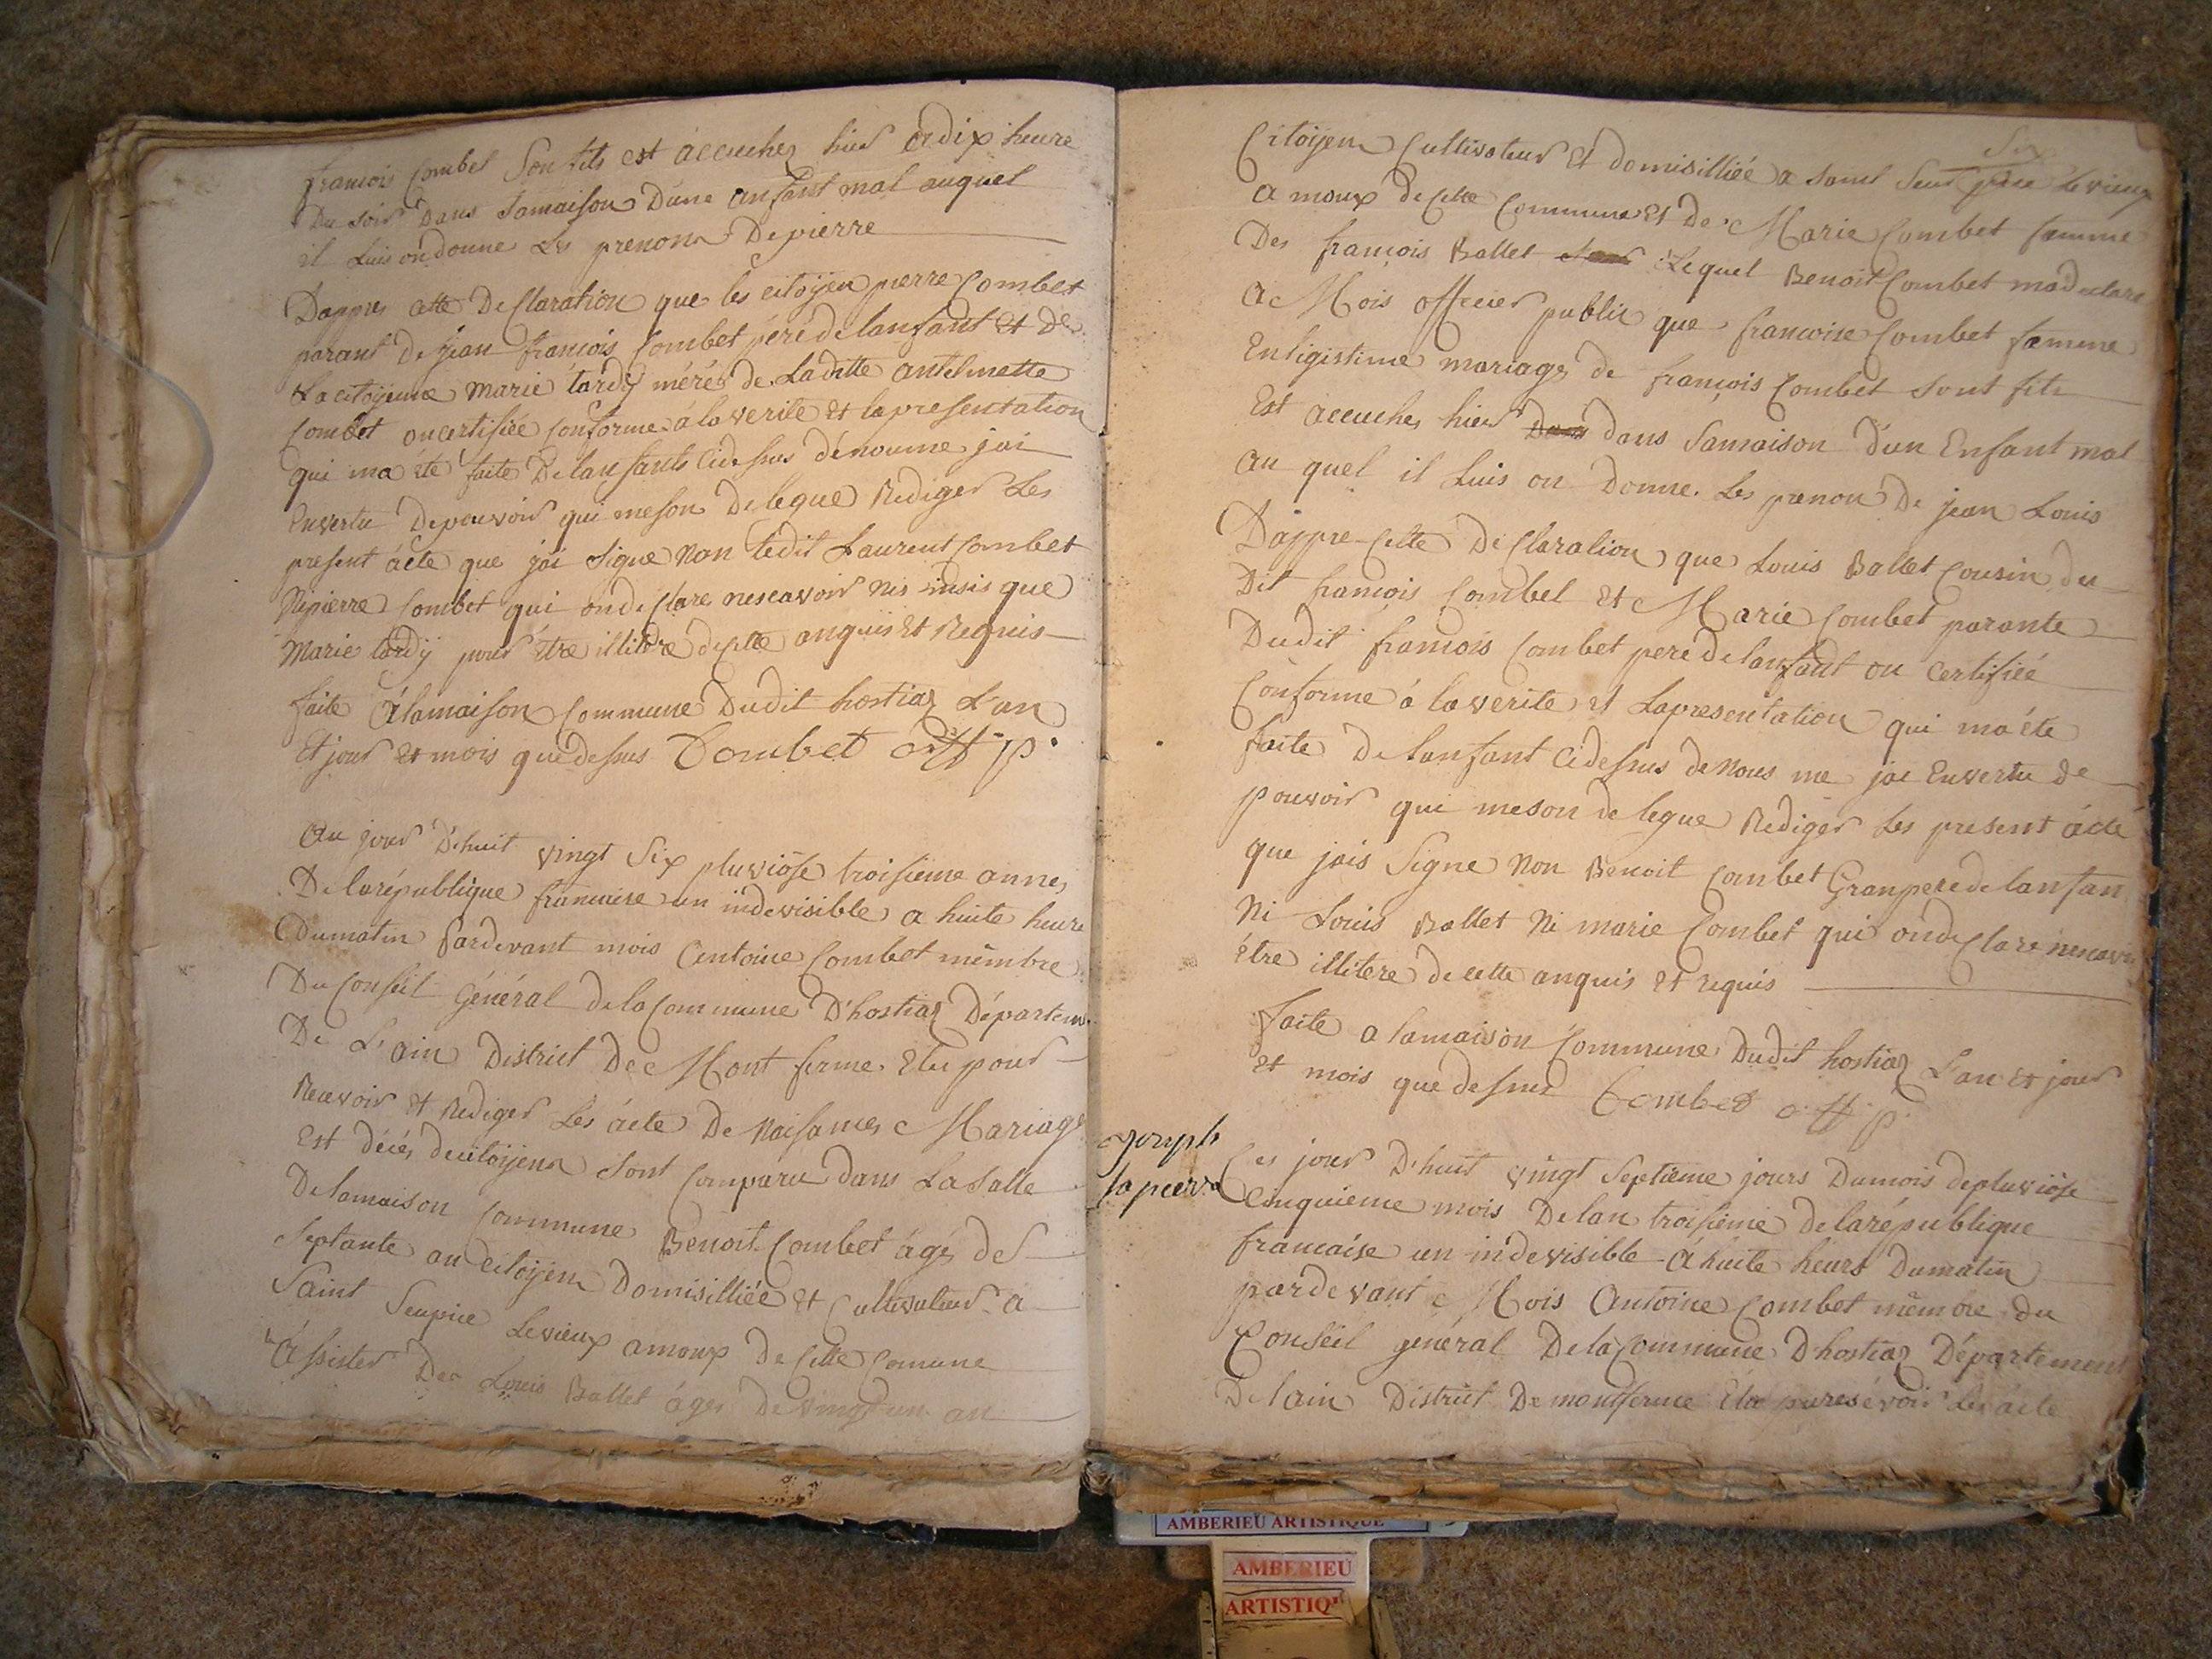 francois Combet Son fils est accuchez hier a dix heure
Du soir Dans Samaison D'une anfant mal auquel
il Luis on donne Les prenom De pierre
Dappres cette Declaration que les citoijen pierre Combet
parant De jean francois Combet pere de lanfant et De
La citoijenne Marie tardij mérée de Laditte antelmette
Combet on certifiée Conforme á la verite et la presentation
qui ma ete faite De lanfants cidessus dénoume jai
Envertu De pouvoir qui meson Delegue Rediger Les
present ácte que jai Signe Non ledit Laurent Combet
Ni pierre Combet qui on declare nescavoir Nis insis que
Marie tardij pour étre illitére de cette anquis et Requis
faite á lamaison Commune Dudit hostiaz L'an
Et jour et mois que dessus Combet off p.
Au jour D'huit vingt Six pluviôse troisieme annez
De la république francaise un indevisible a huite heure
Dumatin Pardevant mois Antoine Combet mêmbre
Du Conseil Général de la Commune D'hostiaz Départem.
De L'ain District De Mont ferme Elu pour
Recevoir et Rediger Les ácte De Naisances Mariage
Est décés de citoijens Sont Comparu dans La Salle
De lamaison Commune Benoit Combet ágés de
Septante an citoijen Domisilliée et Cultivateur a
Saint Seupice Levieux amoux de Cette Comune
Assister De Louis Ballet áges De vingt un an
Citoijen Cultivateur et domisilliée a Saint Seupice Levieux
a moux de Cette Commune et De Marie Combet famme
Des francois Ballet Lequel Benoit Combet ma declare
A Mois officier public que francoise Combet famme
En ligistime mariage de francois Combet Sont fils
Est accuchez hier dans Samaison D'un Enfant mal
au quel il Luis on Donne Les prenon De jean Louis
Dappre Cette Declaration que Louis Ballet Cousin du
Dit francois Combet et Marie Combet parante
Dudit francois Combet pere de lanfant on certifiée
Conforme á la verite et Lapresentation qui ma éte
faite De lanfant Cidessus de Nous me jai Envertu de
pouvoir qui meson delegue Rediger Les present ácte
que jais Signe Non Benoit Combet Granpere de lanfan
Ni Louis Ballet Ni marie Combet qui on declare nescavoir
étre illitere de cette anquis et requis
faite a lamaison Commune Dudit hostiaz L'an et jour
et mois que dessus Combet off p.
joseph
lapierre
Ces jour D'huit vingt Septieme jours Dumois depluviôse
Cinquieme mois De lan troisieme de larépublique
francaise un indevisible á huite heurs Dumatin
pardevant Mois Antoine Combet mêmbre du
Conseil général De la Commune D'hostiaz Département
De lain District De montferme Elu pu resévoir Les ácte
AMBERIEU ARTISTIQUE
AMBERIEU
ARTISTIQ